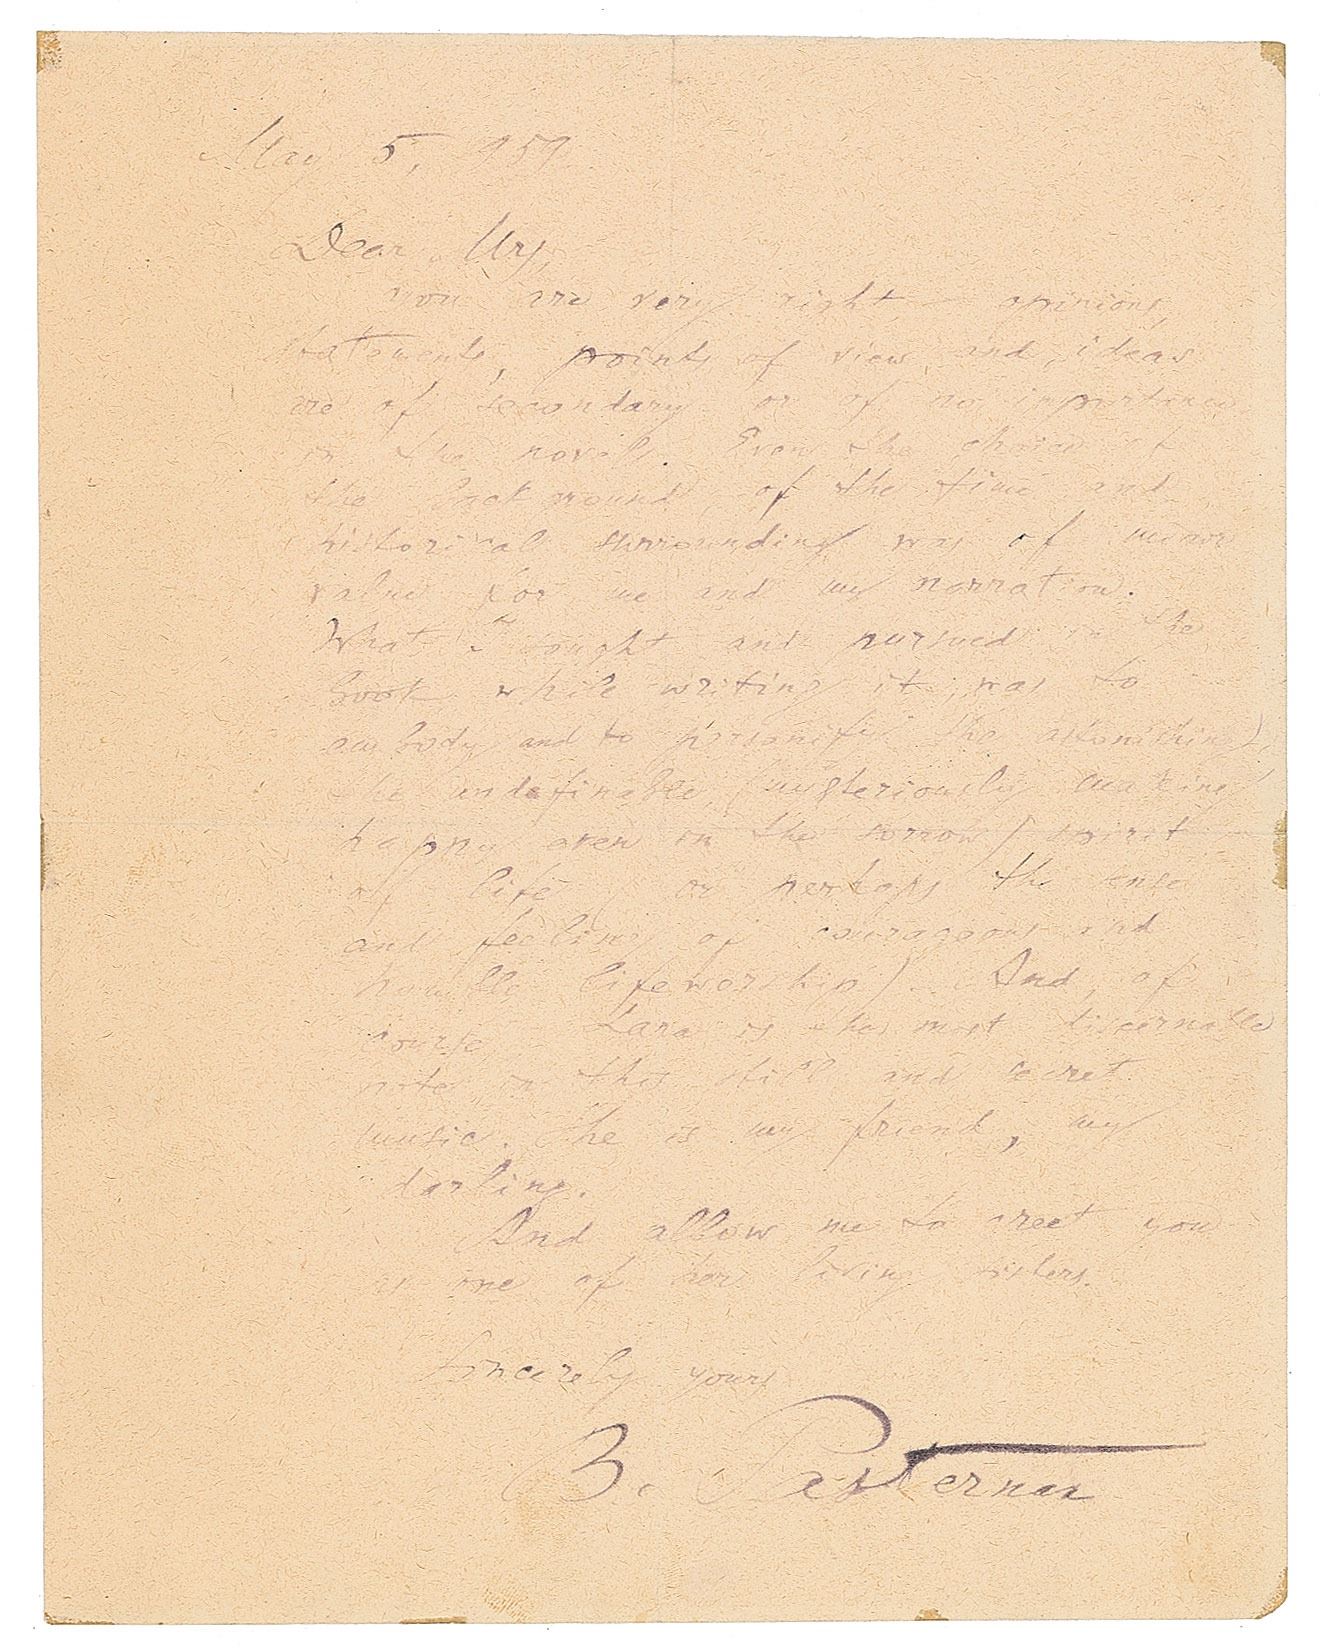 May 5, 1959
Dear Mrs,
you are very right opinions,
statements, points of view and ideas
are of secondary or of no importance
in the novels. Even the choice of
the background, of the time and
historical surrounding was of minor
value for me and my narration.
What I sought and pursued in the
book while writing it, was to
embody and to personify the astonishing,
the undefineble, (mysteriously making
happy even in the sorrow) spirit
of life, or perhaps the sense
and feeling of courageous and
humble lifeworship). And, of
course Lara is the most discernable
note in this still and secret
music. She is my friend, my
darling.
And allow me to greet you
as one of her living sisters.
Sincerely yours
B. Pasternak